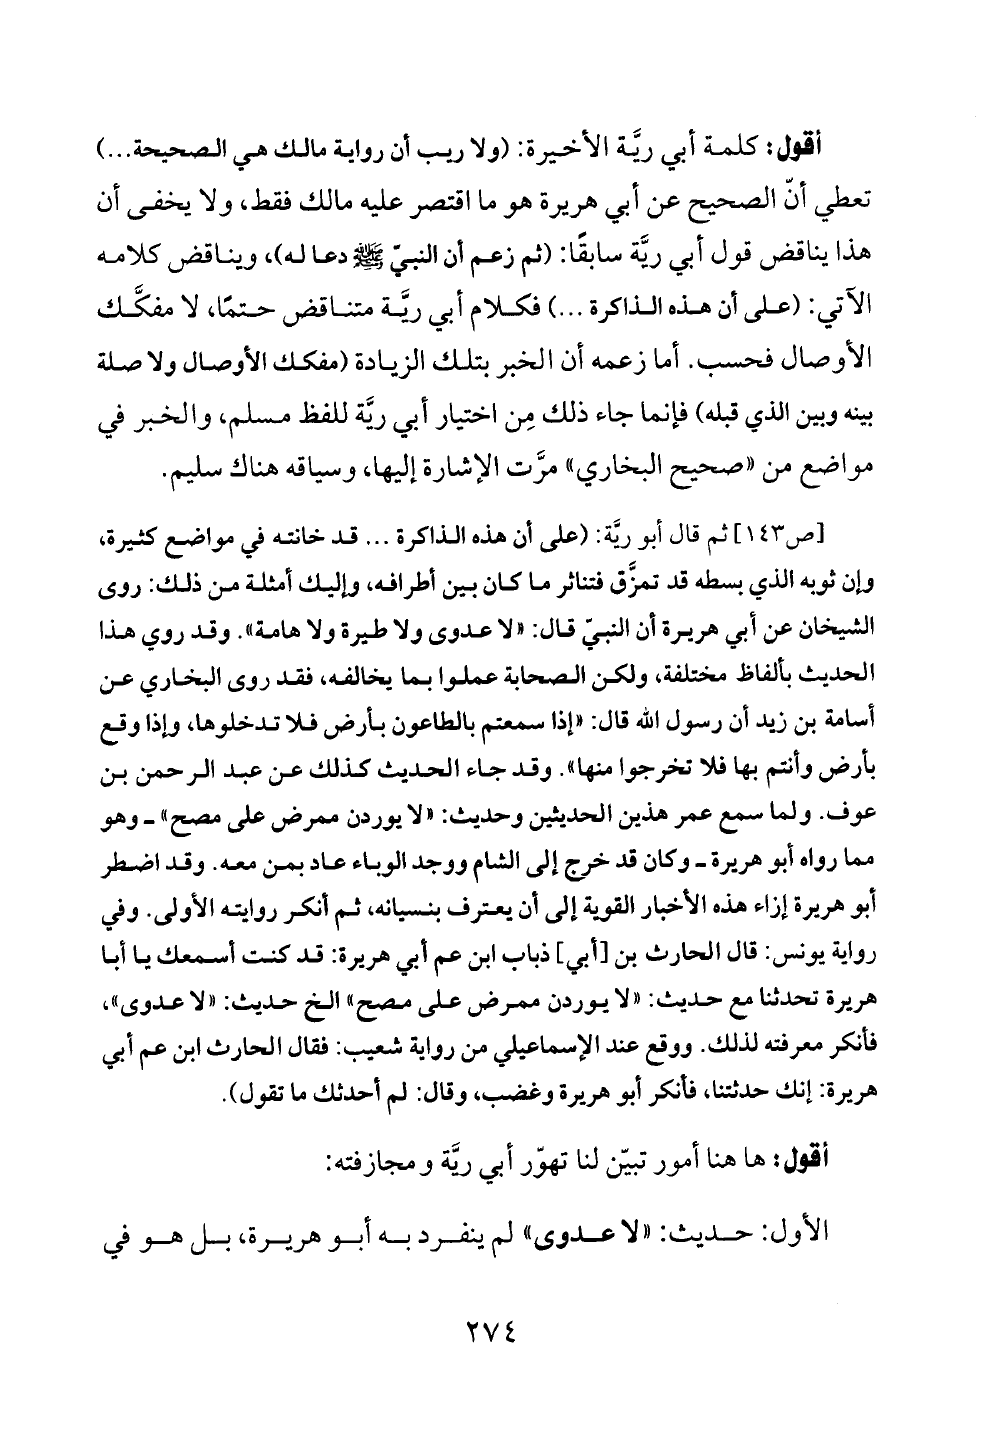 أقول: كلمة أبي ريَّة الأخيرة: (ولا ريب أن رواية مالك هي الصحيحة...)
تعطي أنّ الصحيح عن أبي هريرة هو ما اقتصر عليه مالك فقط، ولا يخفى أن
هذا يناقض قول أبي ريَّة سابقًا: (ثم زعم أن النبيّ ﷺ دعا له)، ويناقض كلامه
الآتي: (على أن هذه الذاكرة ...) فكلام أبي ريَّة متناقض حتمًا، لا مفكَّك
الأوصال فحسب. أما زعمه أن الخبر بتلك الزيادة (مفكك الأوصال ولا صلة
بينه وبين الذي قبله) فإنما جاء ذلك مِن اختيار أبي ريَّة للفظ مسلم، والخبر في
مواضع من «صحيح البخاري» مرَّت الإشارة إليها، وسياقه هناك سليم.
[ص١٤٣] ثم قال أبو ريَّة: (على أن هذه الذاكرة ... قد خانته في مواضع كثيرة،
وإن ثوبه الذي بسطه قد تمزَّق فتناثر ما كان بين أطرافه، وإليك أمثلة من ذلك: روى
الشيخان عن أبي هريرة أن النبيّ قال: «لا عدوى ولا طيرة ولا هامة». وقد روي هذا
الحديث بألفاظ مختلفة، ولكن الصحابة عملوا بما يخالفه، فقد روى البخاري عن
أسامة بن زيد أن رسول الله قال: «إذا سمعتم بالطاعون بأرض فلا تدخلوها، وإذا وقع
بأرض وأنتم بها فلا تخرجوا منها». وقد جاء الحديث كذلك عن عبد الرحمن بن
عوف. ولما سمع عمر هذين الحديثين وحديث: «لا يوردن ممرض على مصح» ـ وهو
مما رواه أبو هريرة ـ وكان قد خرج إلى الشام ووجد الوباء عاد بمن معه. وقد اضطر
أبو هريرة إزاء هذه الأخبار القوية إلى أن يعترف بنسيانه، ثم أنكر روايته الأولى. وفي
رواية يونس: قال الحارث بن [أبي] ذباب ابن عم أبي هريرة: قد كنت أسمعك يا أبا
هريرة تحدثنا مع حديث: «لا يوردن ممرض على مصح» الخ حديث: «لا عدوى»،
فأنكر معرفته لذلك. ووقع عند الإسماعيلي من رواية شعيب: فقال الحارث ابن عم أبي
هريرة: إنك حدثتنا، فأنكر أبو هريرة وغضب، وقال: لم أحدثك ما تقول).
أقول: ها هنا أمور تبيّن لنا تهوّر أبي ريَّة ومجازفته:
الأول: حديث: «لا عدوى» لم ينفرد به أبو هريرة، بل هو في
٢٧٤